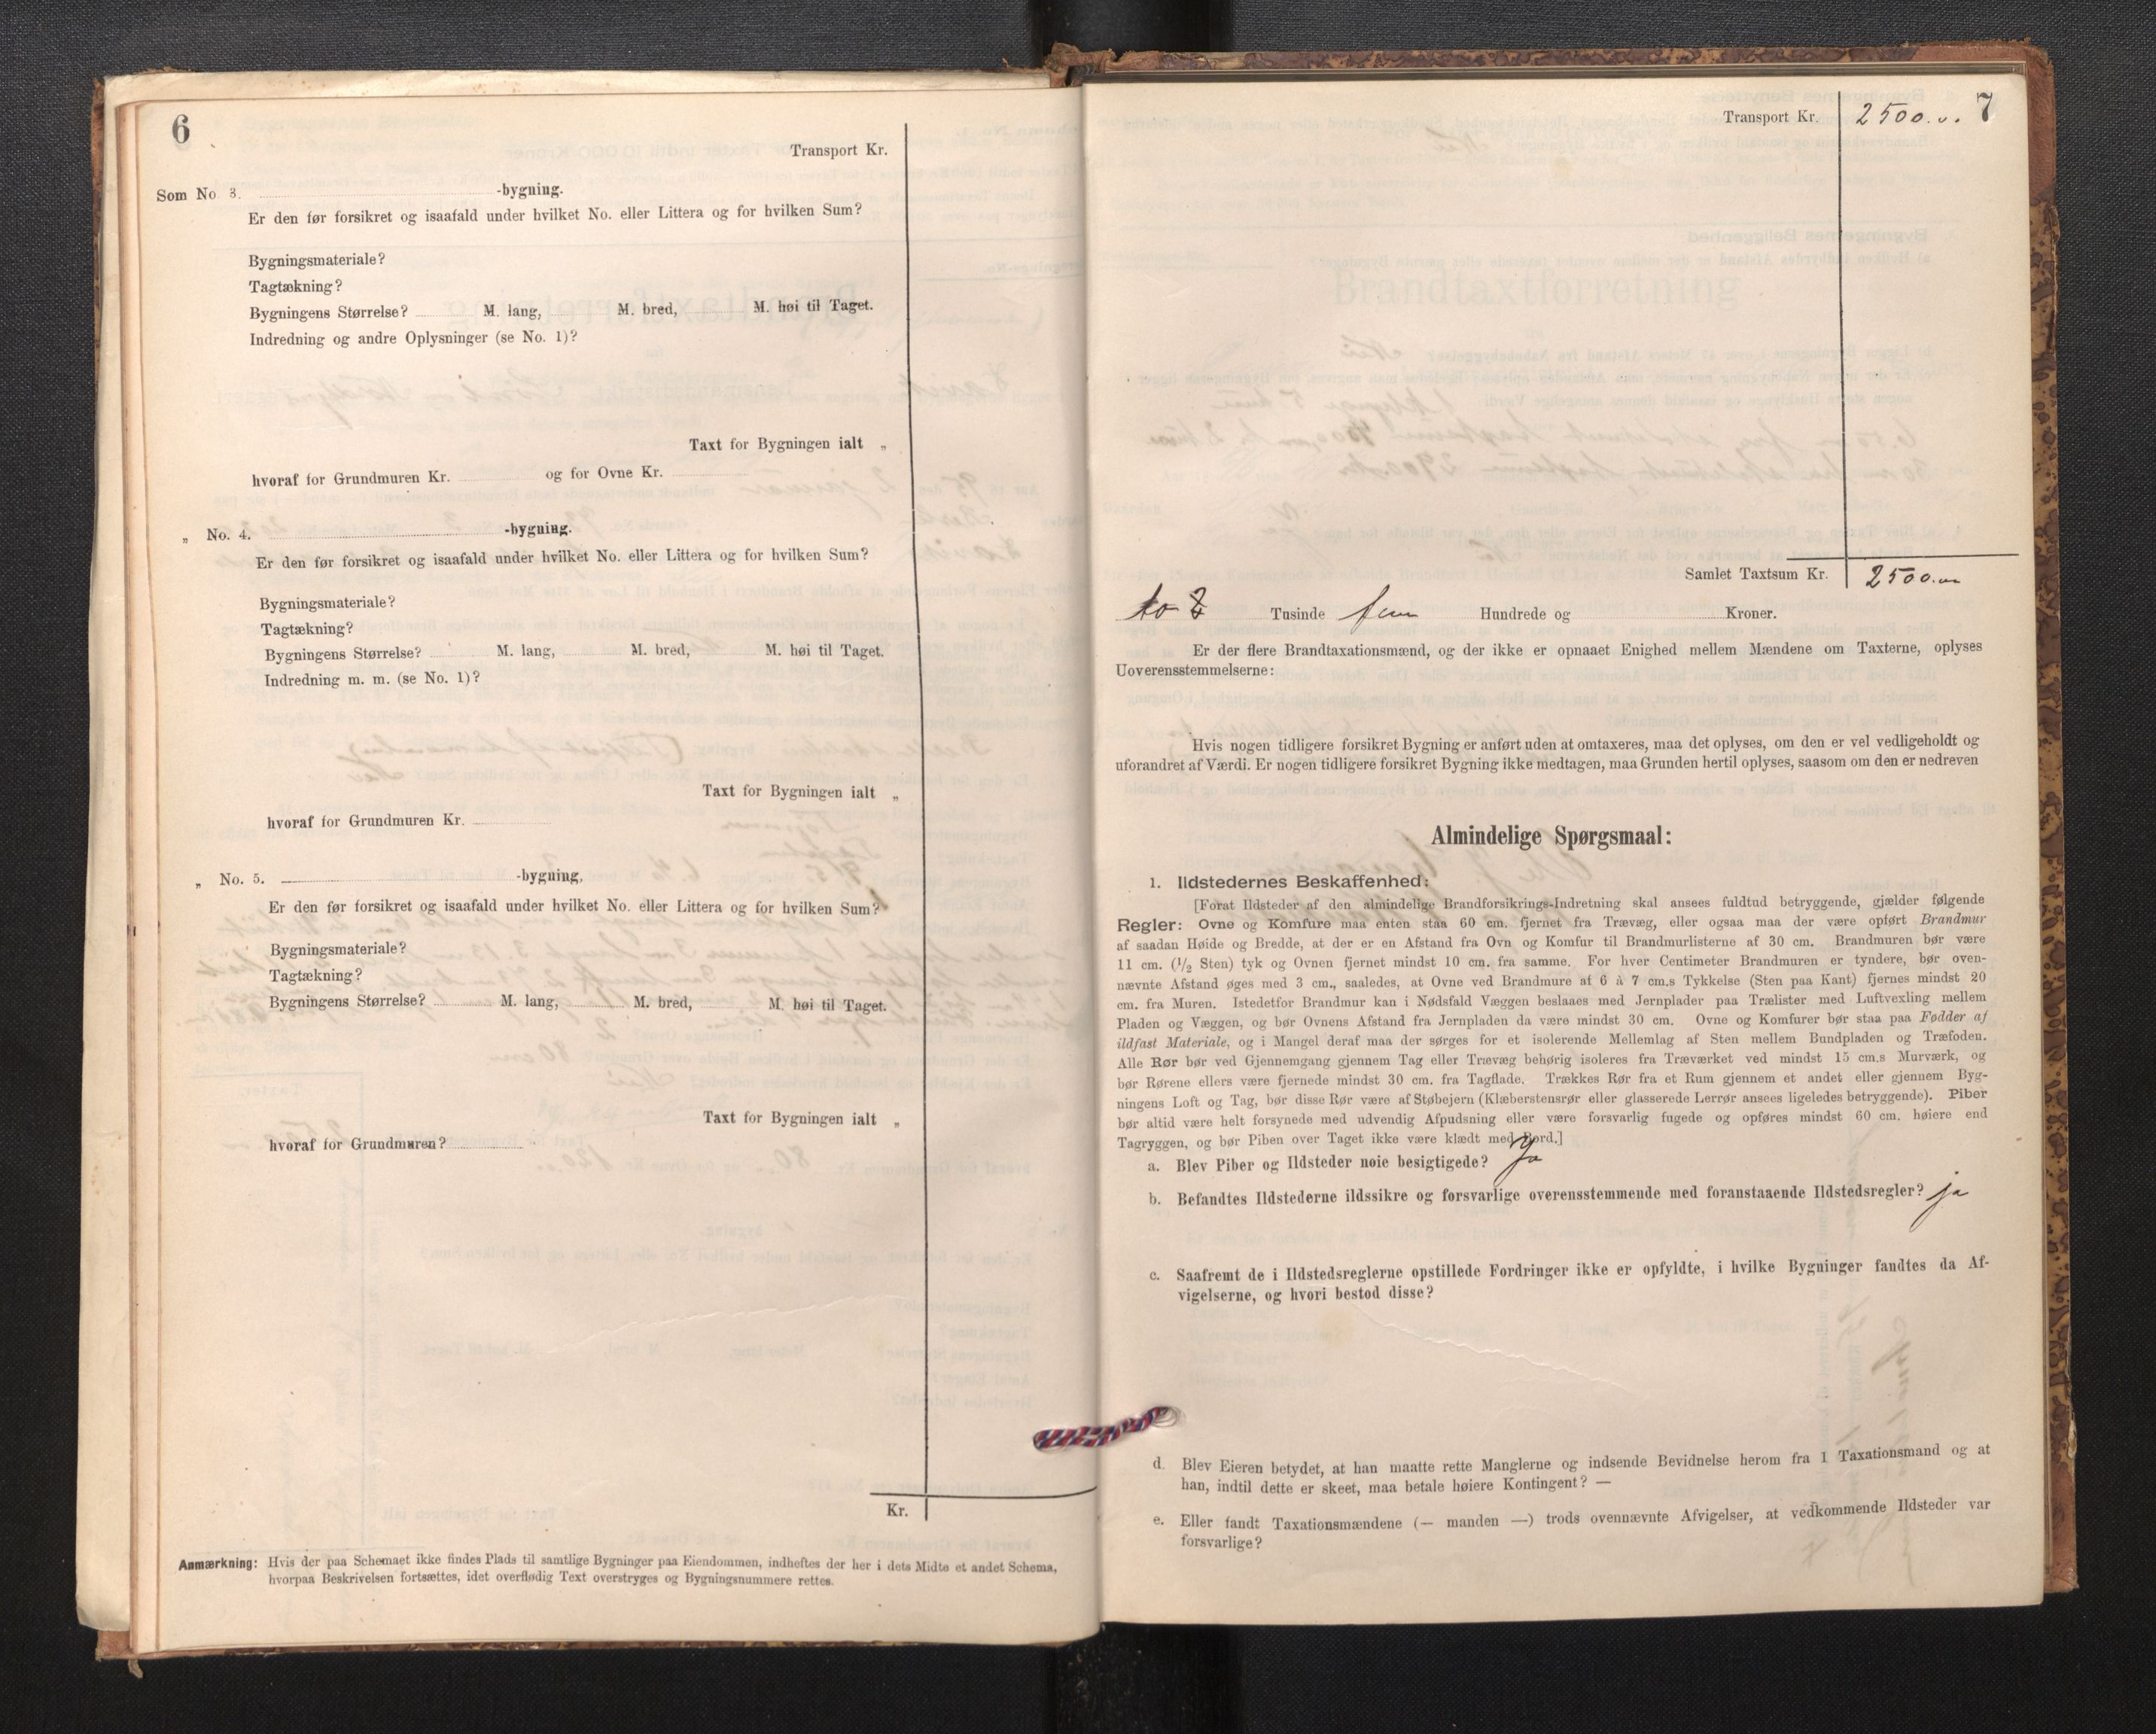 6
Transport Kr.
Som No. 3. -bygning.
Er den før forsikret og isaafald under hvilket No. eller Littera og for hvilken Sum?
Bygningsmateriale?
Tagtækning?
Bygningens Størrelse? M. lang, M. bred, M. høi til Taget.
Indredning og andre Oplysninger (se No. 1)?
Taxt for Bygningen ialt „
hvoraf for Grundmuren Kr. og for Ovne Kr.
„ No. 4. -bygning.
Er den før forsikret og isaafald under hvilket No. eller Littera og for hvilken Sum?
Bygningsmateriale?
Tagtækning?
Bygningens Størrelse? M. lang, M. bred, M. høi til Taget.
Indredning m. m. (se No. 1)?
Taxt for Bygningen ialt „
hvoraf for Grundmuren Kr.
„ No. 5. -bygning,
Er den før forsikret og isaafald under hvilket No. eller Littera og for hvilken Sum?
Bygningsmateriale?
Tagtækning?
Bygningens Størrelse? M. lang, M. bred, M. høi til Taget.
Taxt for Bygningen ialt „
hvoraf for Grundmuren?
Kr.
Anmærkning: Hvis der paa Schemaet ikke findes Plads til samtlige Bygninger paa Eiendommen, indheftes der her i dets Midte et andet Schema,
hvorpaa Beskrivelsen fortsættes, idet overflødig Text overstryges og Bygningsnummere rettes.
7
Transport Kr. 2500.
Samlet Taxtsum Kr. 2500.
to Tusinde fem Hundrede og Kroner.
Er der flere Brandtaxationsmænd, og der ikke er opnaaet Enighed mellem Mændene om Taxterne, oplyses
Uoverensstemmelserne:
Hvis nogen tidligere forsikret Bygning er anført uden at omtaxeres, maa det oplyses, om den er vel vedligeholdt og
uforandret af Værdi. Er nogen tidligere forsikret Bygning ikke medtagen, maa Grunden hertil oplyses, saasom om den er nedreven
Almindelige Spørgsmaal:
1. Ildstedernes Beskaffenhed:
[Forat Ildsteder af den almindelige Brandforsikrings-Indretning skal ansees fuldtud betryggende, gjælder følgende
Regler: Ovne og Komfure maa enten staa 60 cm. fjernet fra Trævæg, eller ogsaa maa der være opført Brandmur
af saadan Høide og Bredde, at der er en Afstand fra Ovn og Komfur til Brandmurlisterne af 30 cm. Brandmuren bør være
11 cm. (1/2 Sten) tyk og Ovnen fjernet mindst 10 cm. fra samme. For hver Centimeter Brandmuren er tyndere, bør oven-
nævnte Afstand øges med 3 cm., saaledes, at Ovne ved Brandmure af 6 à 7 cm.s Tykkelse (Sten paa Kant) fjernes mindst 20
cm. fra Muren. Istedetfor Brandmur kan i Nødsfald Væggen beslaaes med Jernplader paa Trælister med Luftvexling mellem
Pladen og Væggen, og bør Ovnens Afstand fra Jernpladen da være mindst 30 cm. Ovne og Komfurer bør staa paa Fødder af
ildfast Materiale, og i Mangel deraf maa der sørges for et isolerende Mellemlag af Sten mellem Bundpladen og Træfoden.
Alle Rør bør ved Gjennemgang gjennem Tag eller Trævæg behørig isoleres fra Træværket ved mindst 15 cm.s Murværk, og
bør Rørene ellers være fjernede mindst 30 cm. fra Tagflade. Trækkes Rør fra et Rum gjennem et andet eller gjennem Byg-
ningens Loft og Tag, bør disse Rør være af Støbejern (Klæberstensrør eller glasserede Lerrør ansees ligeledes betryggende). Piber
bør altid være helt forsynede med udvendig Afpudsning eller være forsvarlig fugede og opføres mindst 60 cm. høiere end
Tagryggen, og bør Piben over Taget ikke være klædt med Bord.]
a. Blev Piber og Ildsteder nøie besigtigede? Ja
b. Befandtes Ildstederne ildssikre og forsvarlige overensstemmende med foranstaaende Ildstedsregler? ja
c. Saafremt de i Ildstedsreglerne opstillede Fordringer ikke er opfyldte, i hvilke Bygninger fandtes da Af-
vigelserne, og hvori bestod disse?
d. Blev Eieren betydet, at han maatte rette Manglerne og indsende Bevidnelse herom fra 1 Taxationsmand og at
han, indtil dette er skeet, maa betale høiere Kontingent? —
e. Eller fandt Taxationsmændene (— manden —) trods ovennævnte Afvigelser, at vedkommende Ildsteder var
forsvarlige?